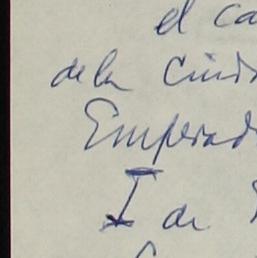 el ca
de la Ciud
Emperad
I de